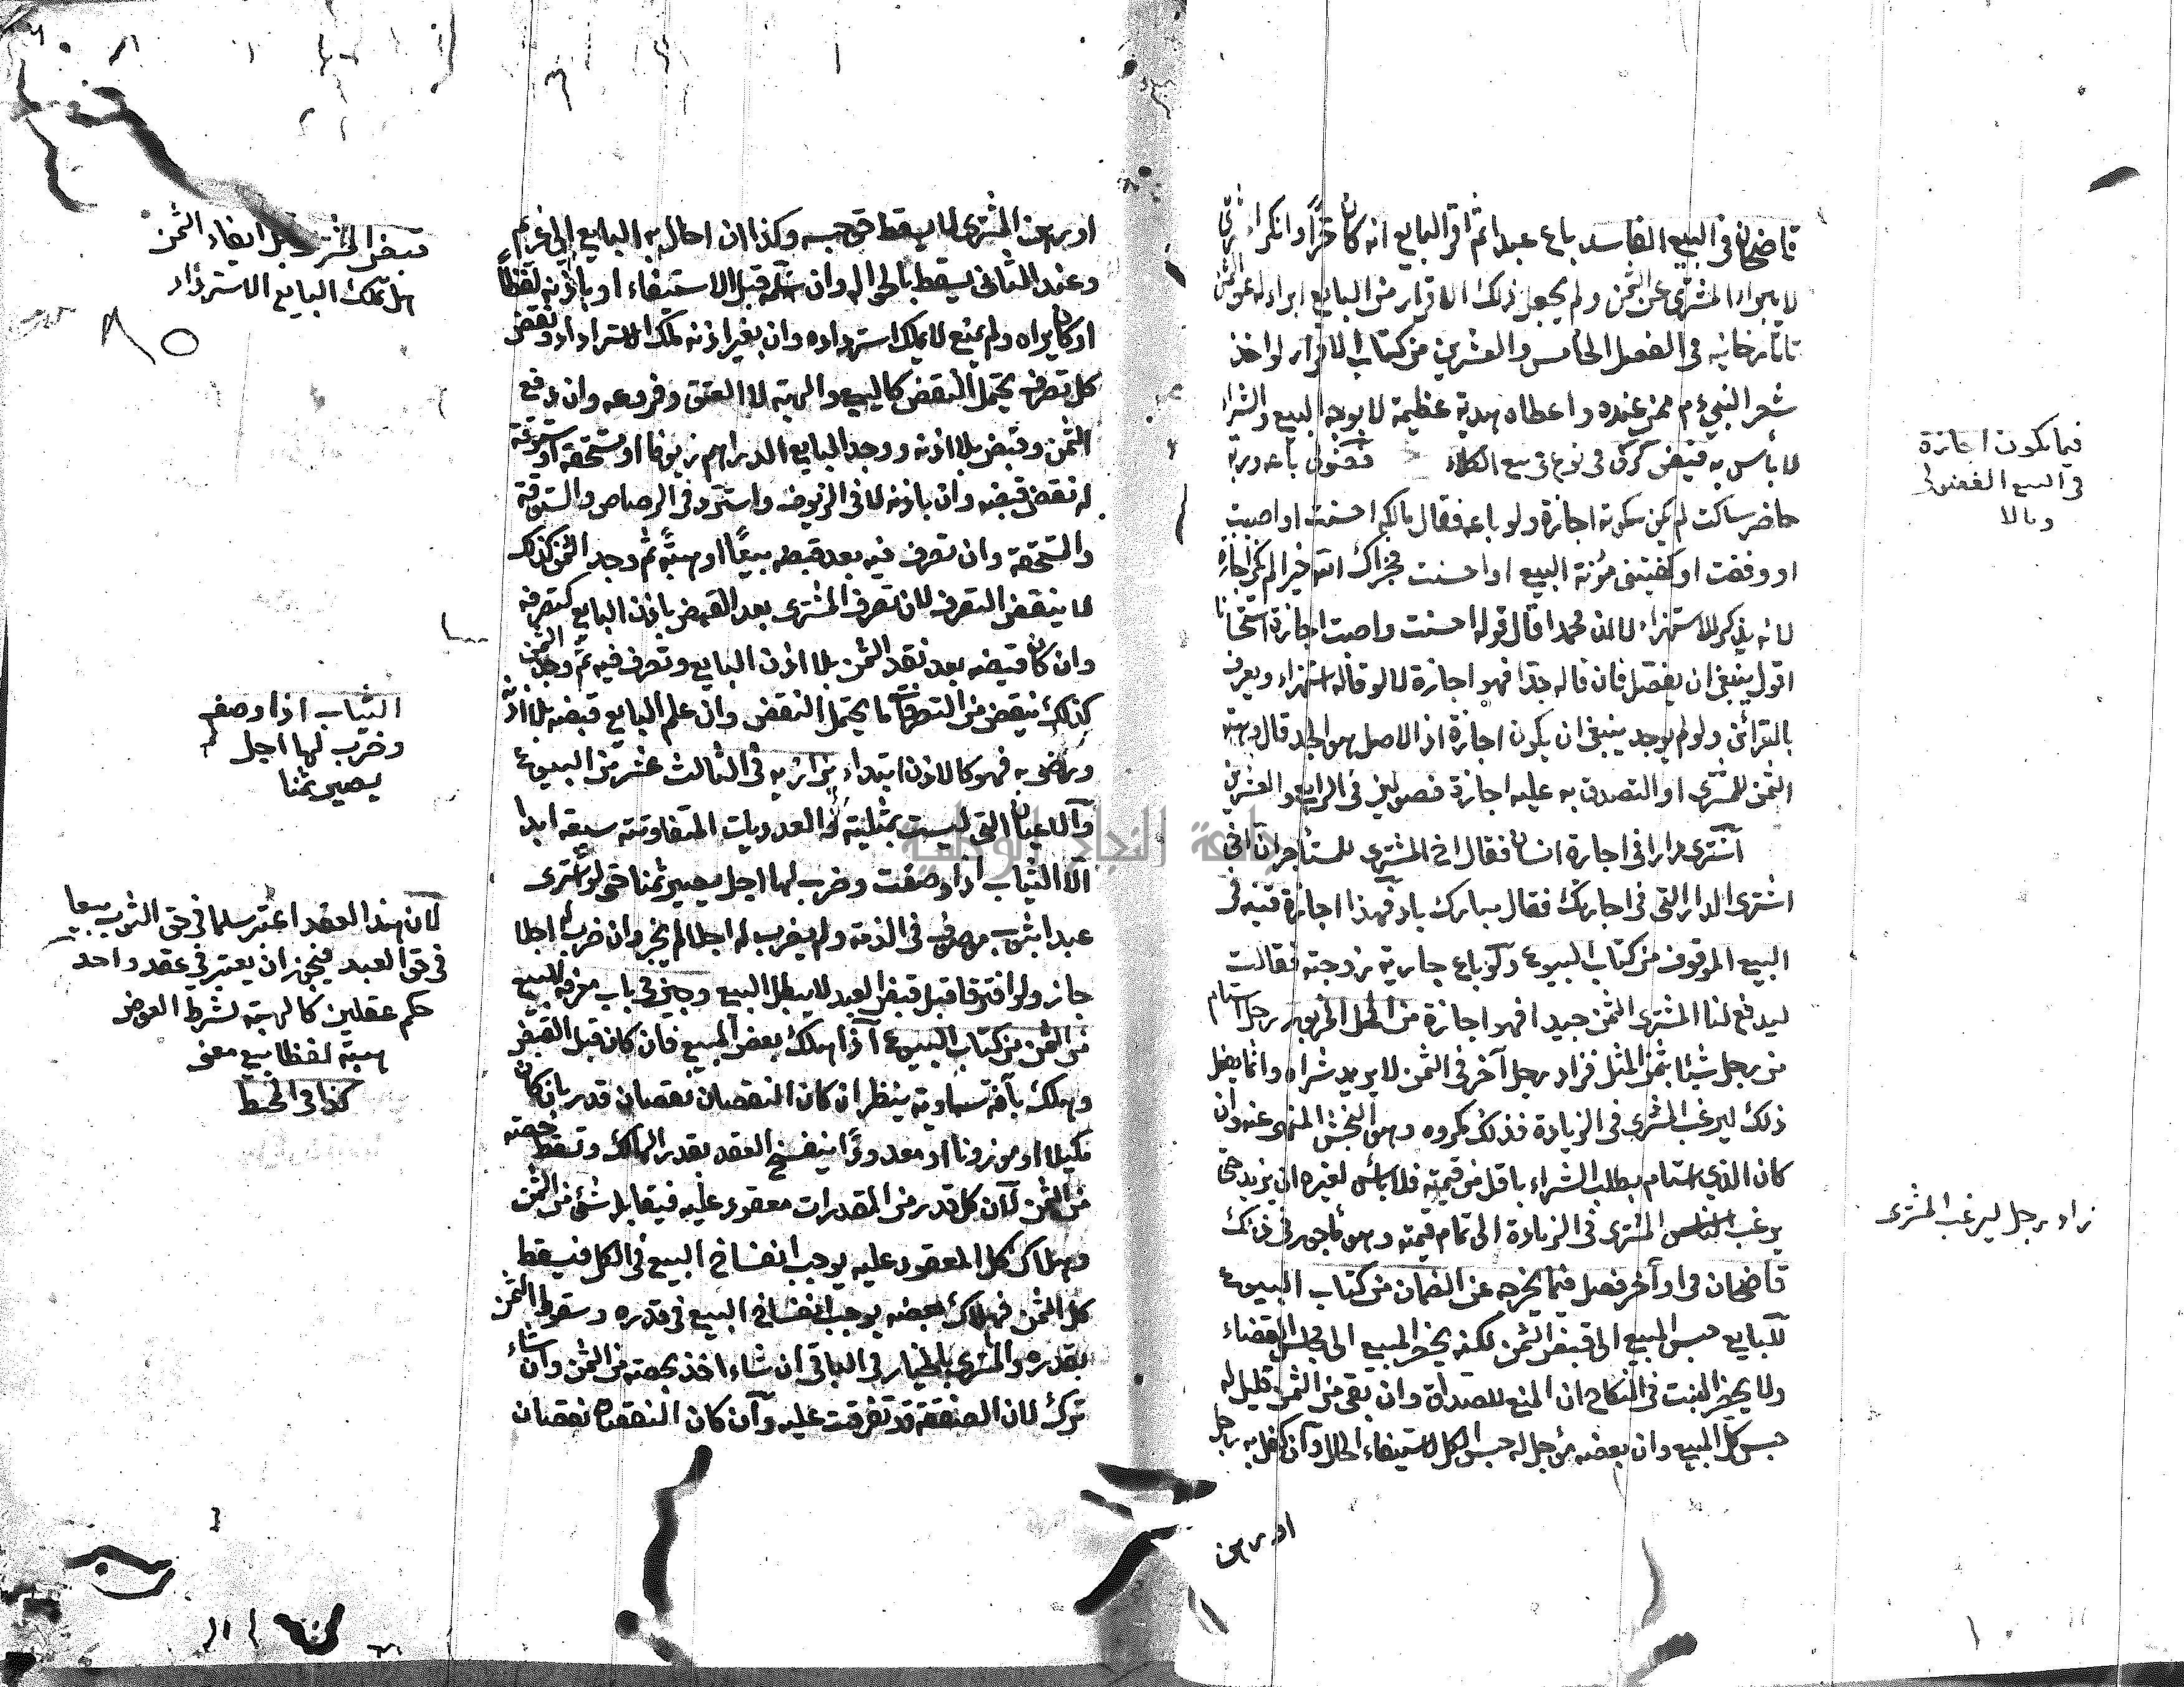 قاضيخان في البيع الفاسد باع عبدا ثم اقر البايع انه كان حرا وانكر المشترى
لا يبرأ المشترى عن الثمن ولم يجعل ذلك الاقرار من البايع ابراء له عن الثمن
تاتارخانيه في الفصل الخامس والعشرين من كتاب الاقرار لو اخذ
شعر النبي ءم ممن عنده واعطاه هدية عظيمة لا بوجه البيع والشراء
لا بأس به فيض كركى في نوع في بيع الكلاء فضولى باعه وربه
حاضر ساكت لم يكن سكوته اجازة ولو باعه فقال مالكه احسنت او اصبت
او وفقت او كفيتنى مؤنة البيع او احسنت فجزاك الله خيرا لم يكن اجازة
لانه يذكر للاستهزاء الا ان محمدا قال قوله احسنت واصبت اجازة استحسانا
اقول ينبغى ان يفصل فان قاله جدا فهو اجازة لا لو قاله استهزاء ويعرف
بالقرائن ولو لم يوجد ينبغى ان يكون اجازة اذ الاصل هو الجد قال وهبة
الثمن للمشترى او التصدق به عليه اجازة فصولين في الرابع والعشرين
اشترى دارا في اجارة انسان فقال اخ المشترى للمستأجر ان اخى
اشترى الدار التى في اجارتك فقال مبارك باد فهذا اجازة قنيه في
البيع الموقوف من كتاب البيوع ولو باع جارية زوجته فقالت
ليدفع لنا المشترى الثمن جيدا فهو اجازة من المحل المزبور رجل استام
من رجل شيئا بثمن المثل فزاد رجل آخر في الثمن لا يريد شراه وانما يفعل
ذلك ليرغب المشترى في الزيادة فذلك مكروه وهو النجش المنهى عنه وان
كان الذى استام يطلب الشراء باقل من قيمته فلا بأس لغيره ان يزيد حتى
يرغب المشترى في الزيادة الى تمام قيمته وهو مأجور في ذلك
قاضيخان في اوآخر فصل فيما يخرجه عن الضمان من كتاب البيوع
للبايع حبس المبيع الى قبض الثمن لكنه يحضر المبيع الى مجلس القضاء
ولا يحضر البنت في النكاح ان المنع للصداق وان بقى من الثمن قليل له
حبس كل المبيع وان بعضه مؤجل له حبس الكل لاستيفاء الحال وان كفل به رجل
او رهن
فيما يكون اجازة
في البيع الفضولى
وما لا
زاد رجل ليرغب المشترى
او رهن المشترى لا يسقط حق حبسه وكذا ان احال به البايع الى غريم
وعند الثانى يسقط بالحواله وان سلمه قبل الاستيفاء او باذنه لفظا
او كان يراه ولم يمنع لا يملك استرداده وان بغير اذنه ملك الاسترداد ونقض
كل تصرف يحتمل النقض كالبيع والهبة لا العتق وفروعه وان دفع
الثمن وقبض بلا اذنه ووجد البايع الدراهم زيوفا او مستحقه او ستوقة
له نقض قبضه وان باذنه لا في الزيوف واسترد في الرصاص والستوقة
والمستحقة وان تصرف فيه بعد قبضه بيعا او هبة ثم وجد الثمن كذلك
لا ينقض التصرف لان تصرف المشترى بعد القبض باذن البايع كتصرفه
وان كان قبضه بعد نقد الثمن بلا اذن البايع وتصرف فيه ثم وجد الثمن
كذلك ينقض من التصرفات ما يحتمل النقض وان علم البايع قبضه بلا اذنه
ورضى به فهو كالاذن ابتداء بزازيه في الثالث عشر من البيوع
والاعيان التى ليست بمثلية والعدديات المتفاوتة مبيعة ابدا
الا الثياب اذا وصفت وضرب لها اجل يصير ثمنا حتى لو اشترى
عبدا بثوب موصوف في الذمة ولم يضرب له اجلا لم يجز وان ضرب اجلا
جاز ولو افترقا قبل قبض العبد لا يبطل البيع وجيز في باب معرفة المبيع
من الثمن من كتاب البيوع اذا هلك بعض المبيع فان كان قبل القبض
وهلك بآفة سماوية ينظر ان كان النقصان نقصان قدر بان كان
مكيلا او موزونا او معدودا ينفسخ العقد بقدر الهالك وتسقط حصته
من الثمن لان كل قدر من المقدرات معقود عليه فيقابله شئ من الثمن
وهلاك كل المعقود عليه يوجب انفساخ البيع في الكل فيسقط
كل الثمن فهلاك بعضه يوجب انفساخ البيع في قدره وسقوط الثمن
بقدره والمشترى بالخيار في الباقى ان شاء اخذ بحصته من الثمن وان شاء
ترك لان الصفقة قد تفرقت عليه وان كان النقصان نقصان
قبض المشترى قبل ايفاء الثمن
هل يملك البايع الاسترداد
٨٥
الثياب اذا وصف
وضرب لها اجل
يصير ثمنا
لان هذا العقد اعتبر سلما في حق الثوب بيعا
في حق العبد فيجوز ان يعتبر في عقد واحد
حكم عقدين كالهبة بشرط العوض
هبة لفظا بيع معنى
كذا في المحيط
جامعة النجاح الوطنية